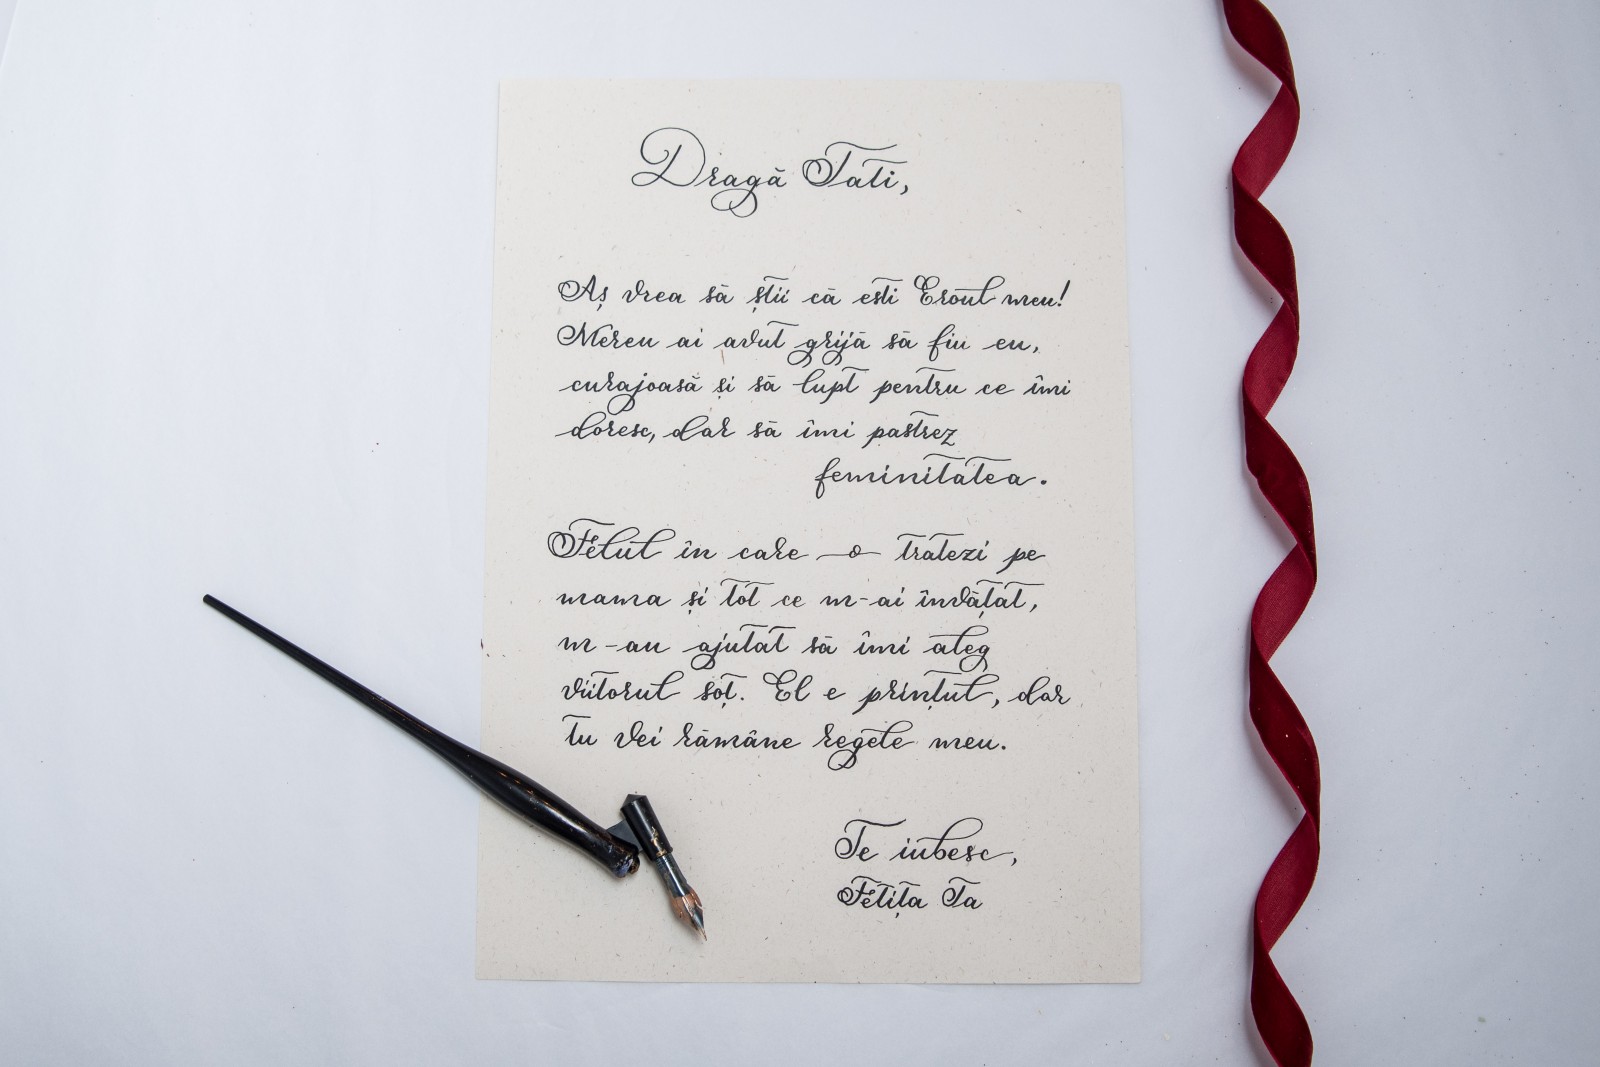 Dragă Tati,
Aș vrea să știi că ești Eroul meu!
Mereu ai avut grijă să fiu eu,
curajoasă și să lupt pentru ce îmi
doresc, dar să îmi pastrez
feminitatea.
Felul în care o tratezi pe
mama și tot ce m-ai învățat,
m-au ajutat să îmi aleg
viitorul soț. El e prințul, dar
tu vei rămâne regele meu.
Te iubesc,
Fetița Ta